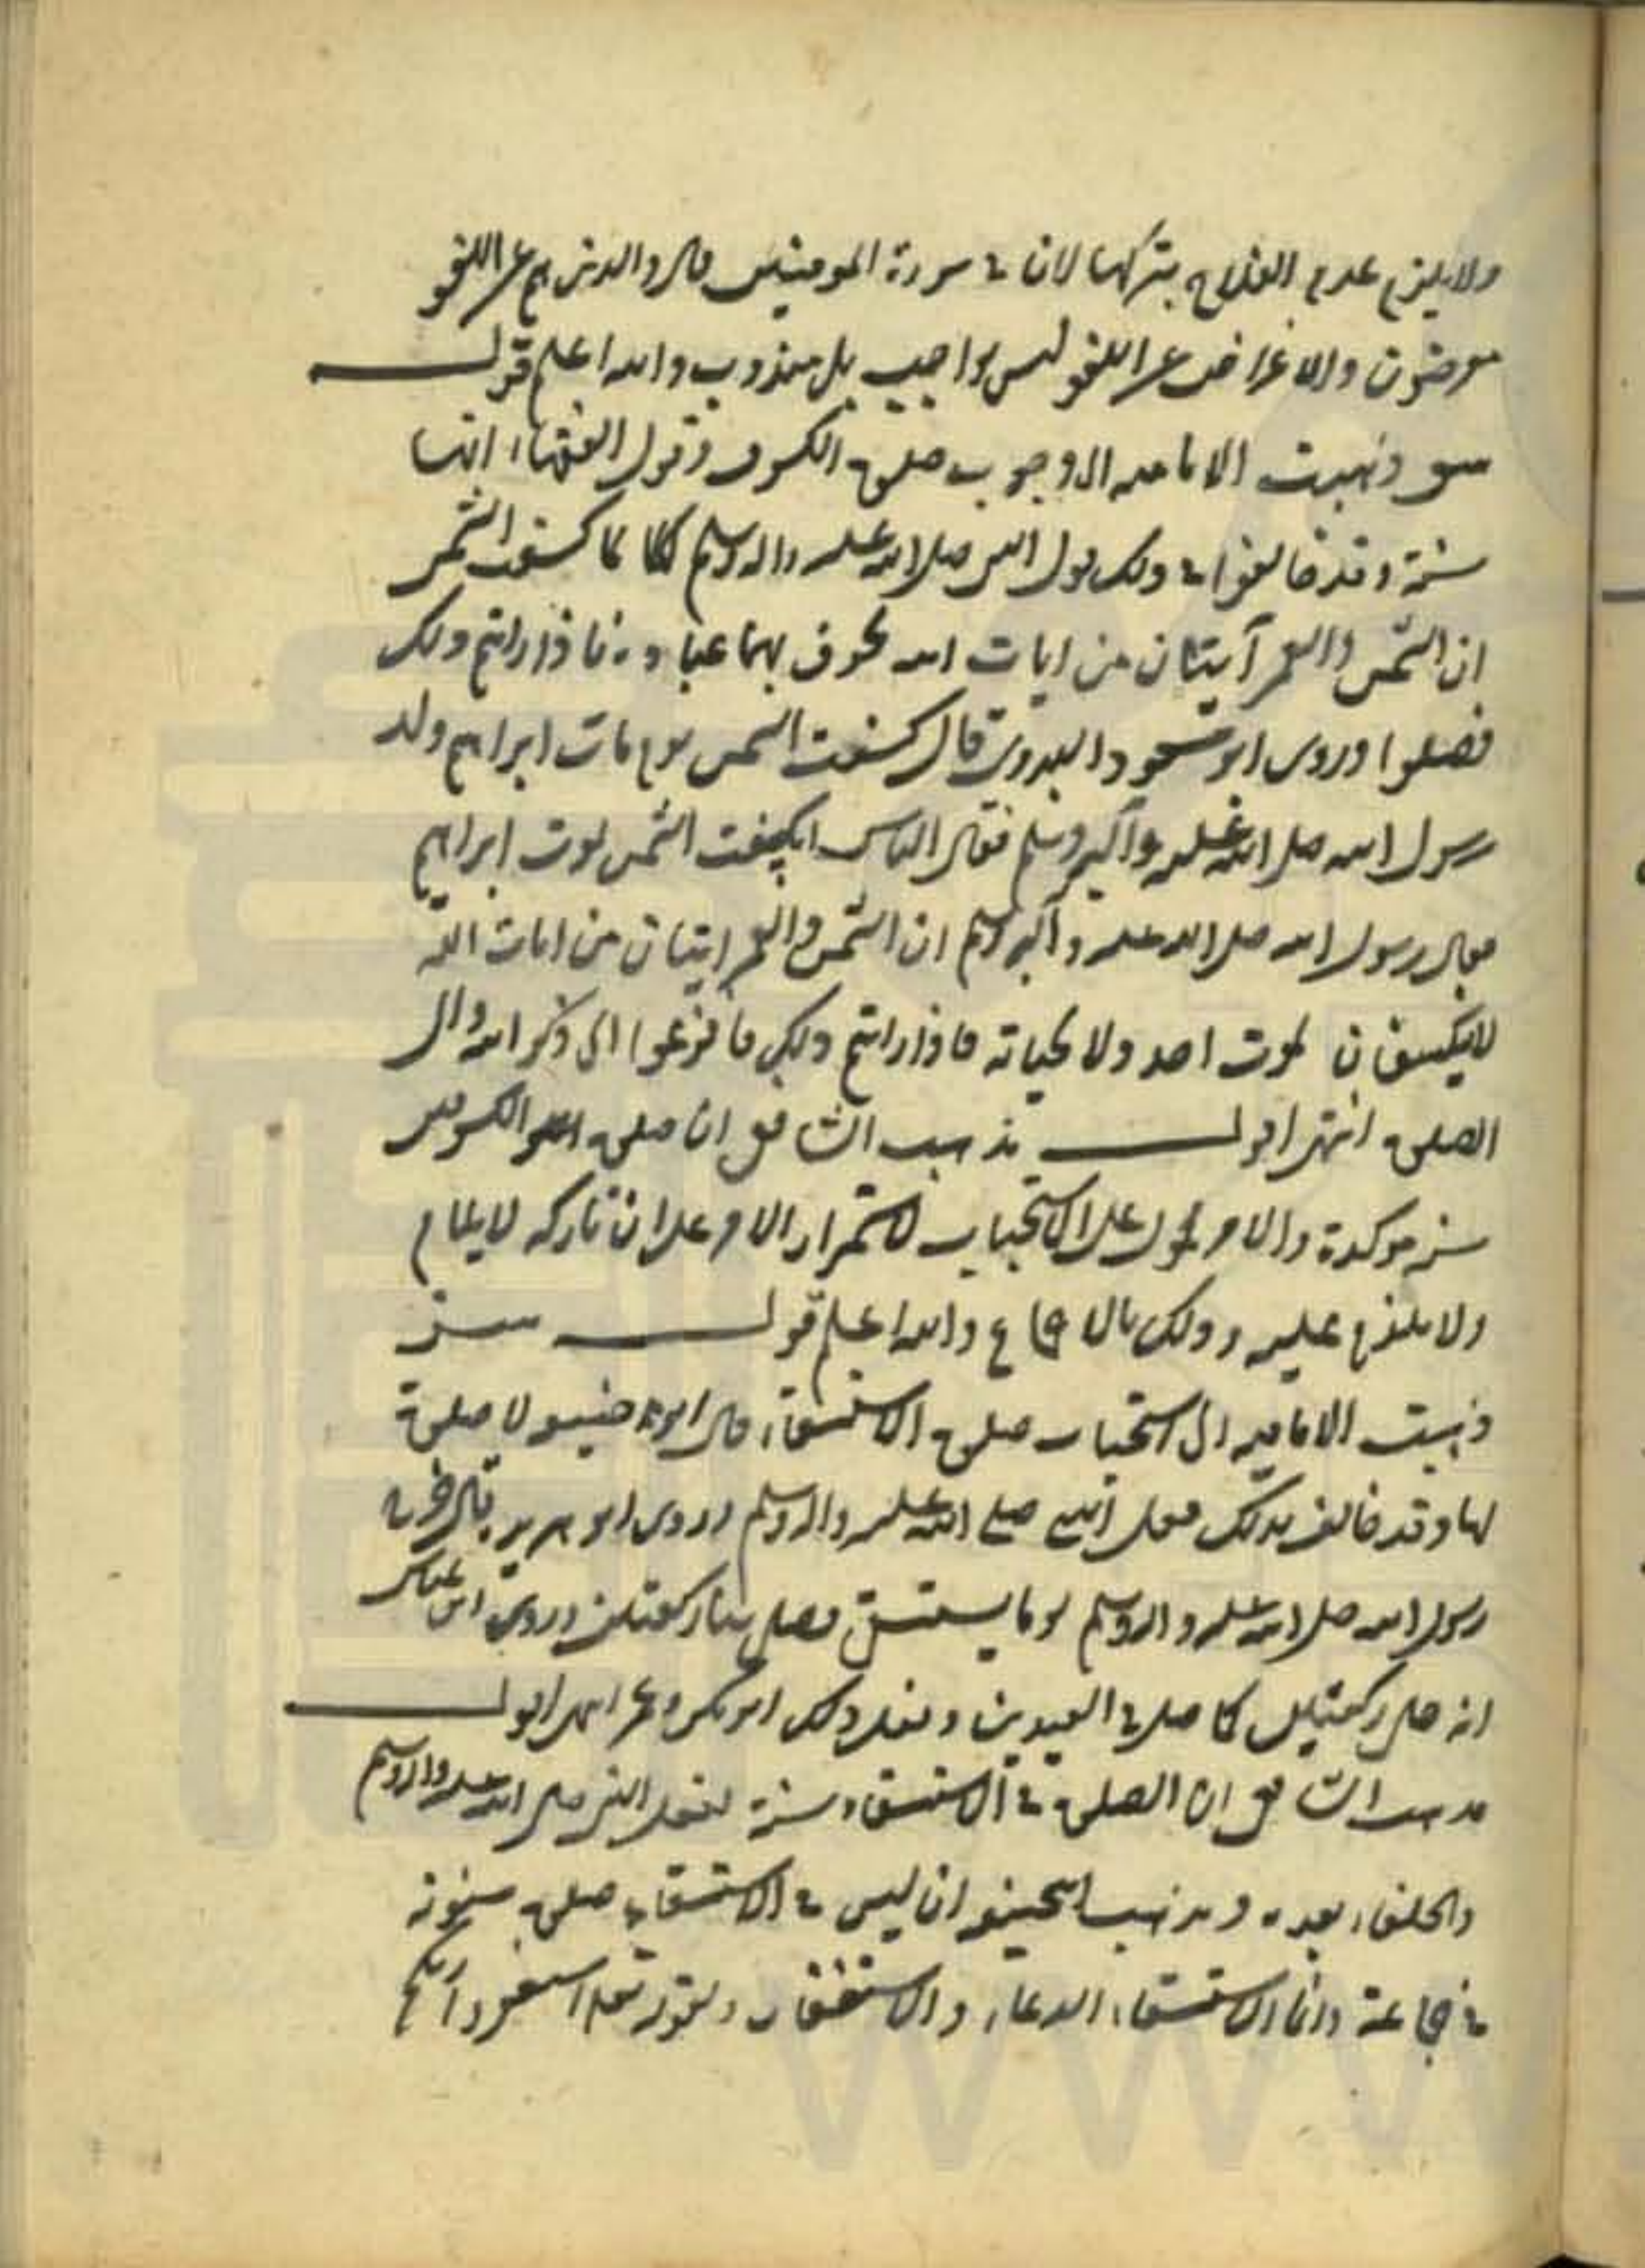 ولا يلزم عدم الفلاح بتركها لان في سورة المومنين قال والذين هم عن اللغو
معرضون والاعراض عن اللغو ليس بواجب بل مندوب والله اعلم قولـــه
ذهبت الامامية الى وجوب صلوة الكسوف وقول الفقهاء انها
سنة وقد خالفوا في ذلك قول النبي صلى الله عليه واله وسلم لما كسفت الشمس
ان الشمس والقمر آيتان من ايات الله يخوف بهما عباده فاذا رايتم ذلك
فصلوا وروى ابو مسعود البدرى قال كسفت الشمس يوم مات ابراهيم ولد
رسول الله صلى الله عليه وآله وسلم فقال الناس انكسفت الشمس لموت ابراهيم
فقال رسول الله صلى الله عليه وآله وسلم ان الشمس والقمر ايتان من ايات الله
لا ينكسفان لموت احد ولا لحياته فاذا رايتم ذلك فافزعوا الى ذكر الله والى
الصلوة انتهى اقولـــ مذهب الشافعى ان صلوة الكسوفين
سنة موكدة والامر محمول على الاستحباب لاستمرار الامر على ان تاركه لا يلام
ولا عليه وذلك بالاجماع والله اعلم قولـــه
ذهبت الامامية الى استحباب صلوة الاستسقاء قال ابو حنيفة لا صلوة
لها وقد خالف بذلك فعل النبى صلى الله عليه واله وسلم وروى ابو هريرة قال خرج
رسول الله صلى الله عليه واله وسلم يوما يستسقى فصلى بنا ركعتين وروى ابن عباس
انه صلى ركعتين كما صلى في العيدين وفعل ذلك ابو بكر وعمر انتهى اقولـــ
مذهب الشافعى ان الصلوة في الاستسقاء سنة لفعل النبى صلى الله عليه واله وسلم
والخلفاء بعده ومذهب ابى حنيفة ان ليس في الاستسقاء صلوة مسنونة
في جماعة وانما الاستسقاء الدعاء والاستغفار لقوله تعالى استغفروا ربكم